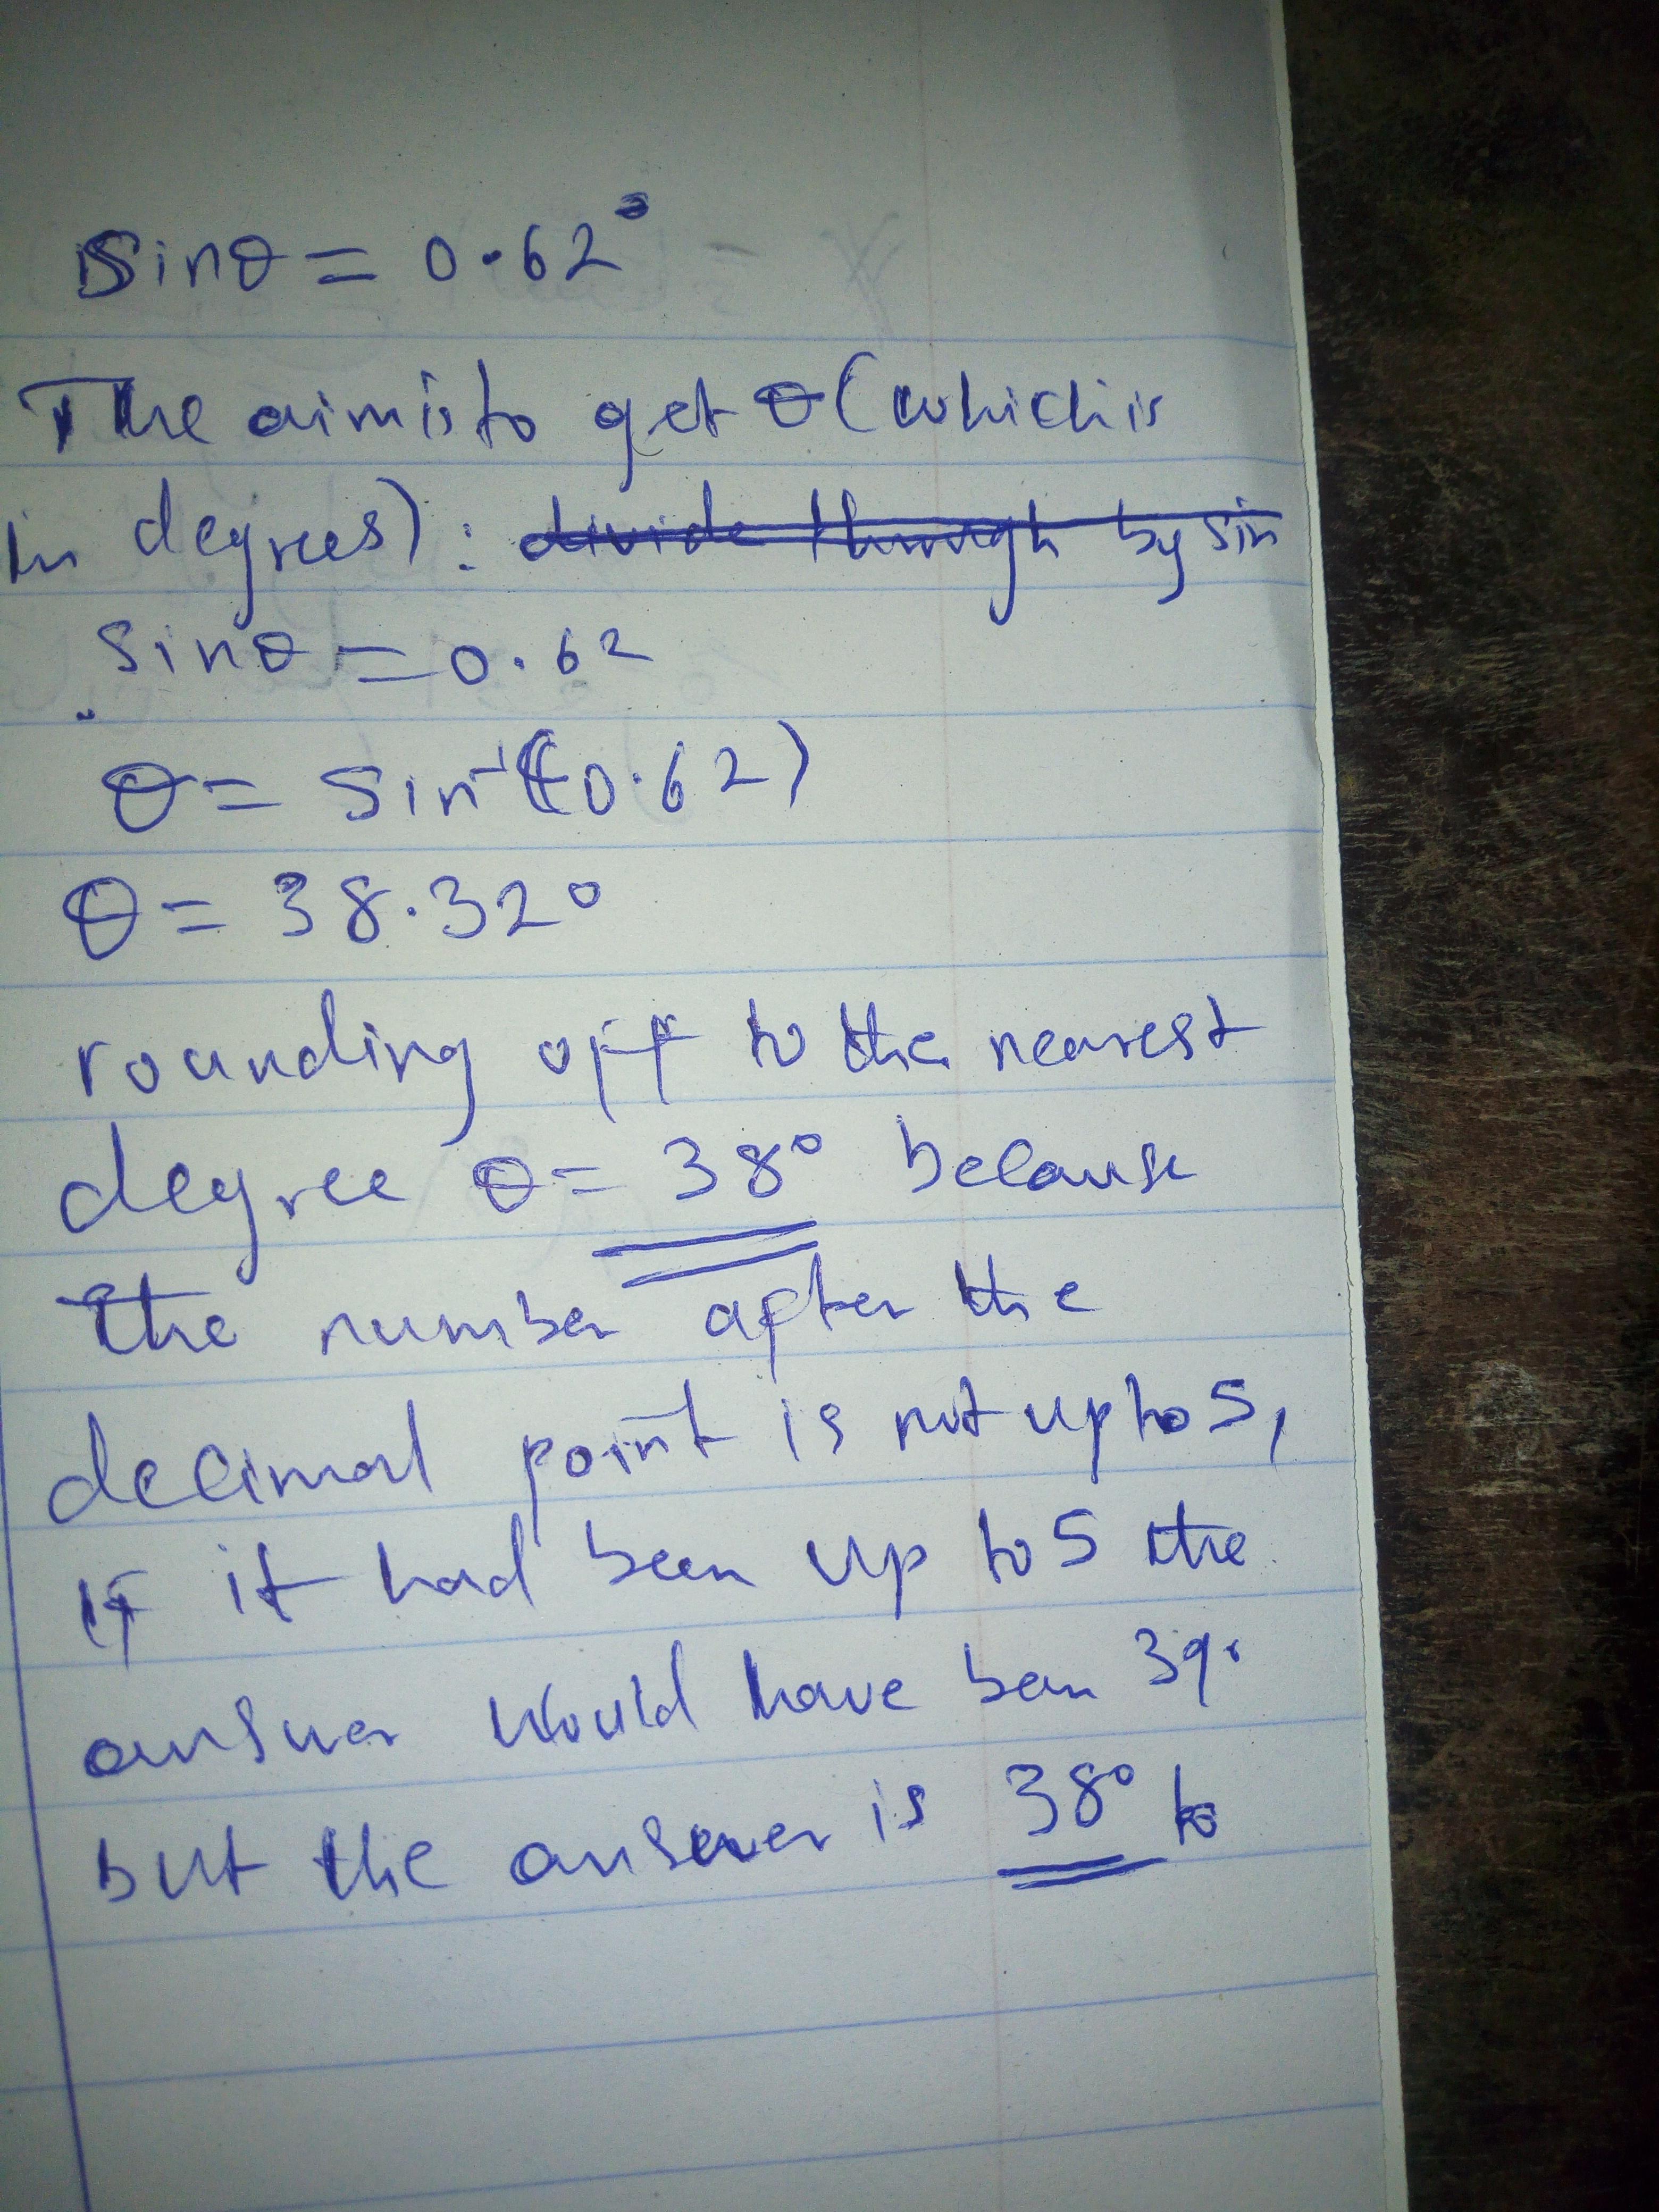 Sinθ = 0.62°
The aim is to get θ (which is
in degrees): divide through by sin
sinθ = 0.62
θ = sin⁻¹(0.62)
θ = 38.32°
rounding off to the nearest
degree θ = 38° because
the number after the
decimal point is not up to 5,
if it had been up to 5 the
answer would have been 39°
but the answer is 38° to